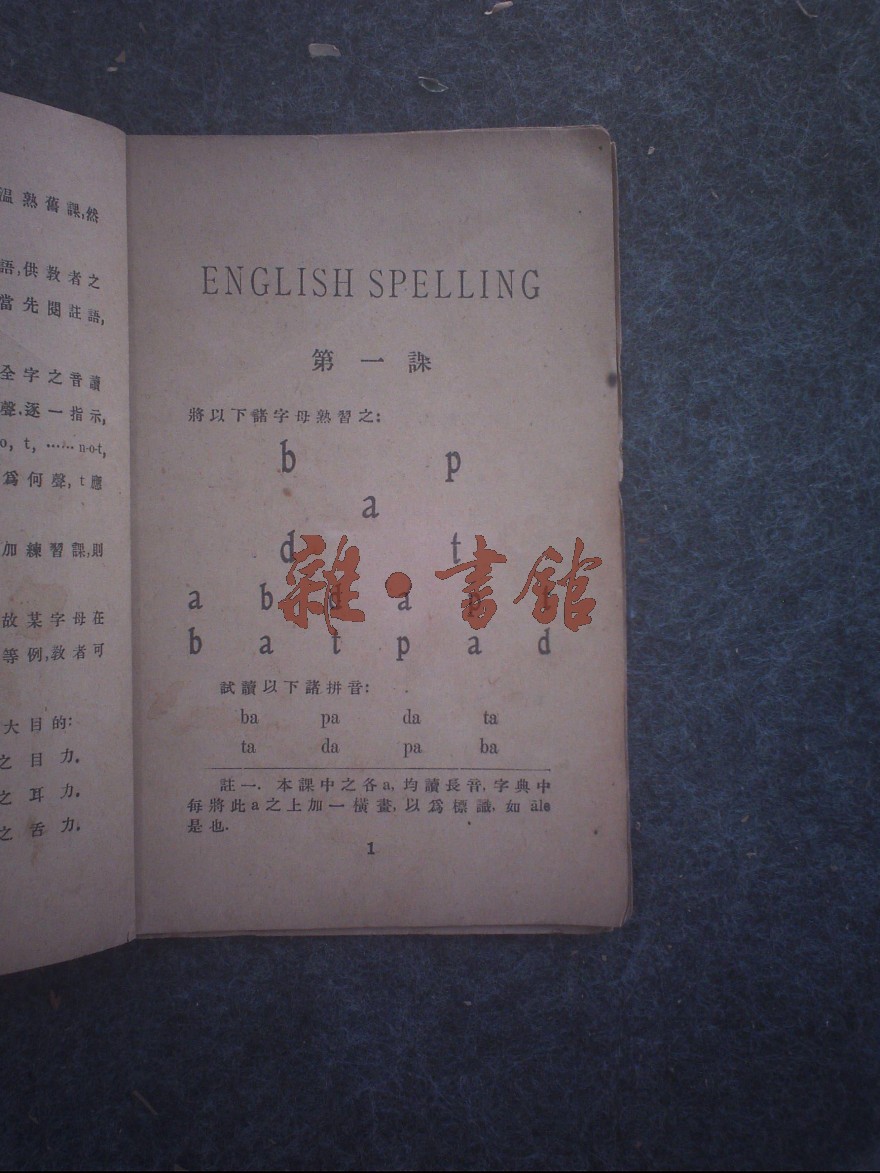 温熟舊課,然
語,供敎者之
當先閱註語,
全字之音讀
聲,逐一指示,
o, t, ...... n-o-t,
爲何聲, t 應
加練習課,則
故某字母在
等例,敎者可
大目的:
之目力.
之耳力.
之舌力.
ENGLISH SPELLING
第一課
將以下諸字母熟習之:
b p
a
d t
a b d a p
b a t p a d
雜·書館
試讀以下諸拼音:
ba pa da ta
ta da pa ba
註一. 本課中之各a, 均讀長音, 字典中
每將此a之上加一橫畫, 以爲標識, 如 āle
是也.
1